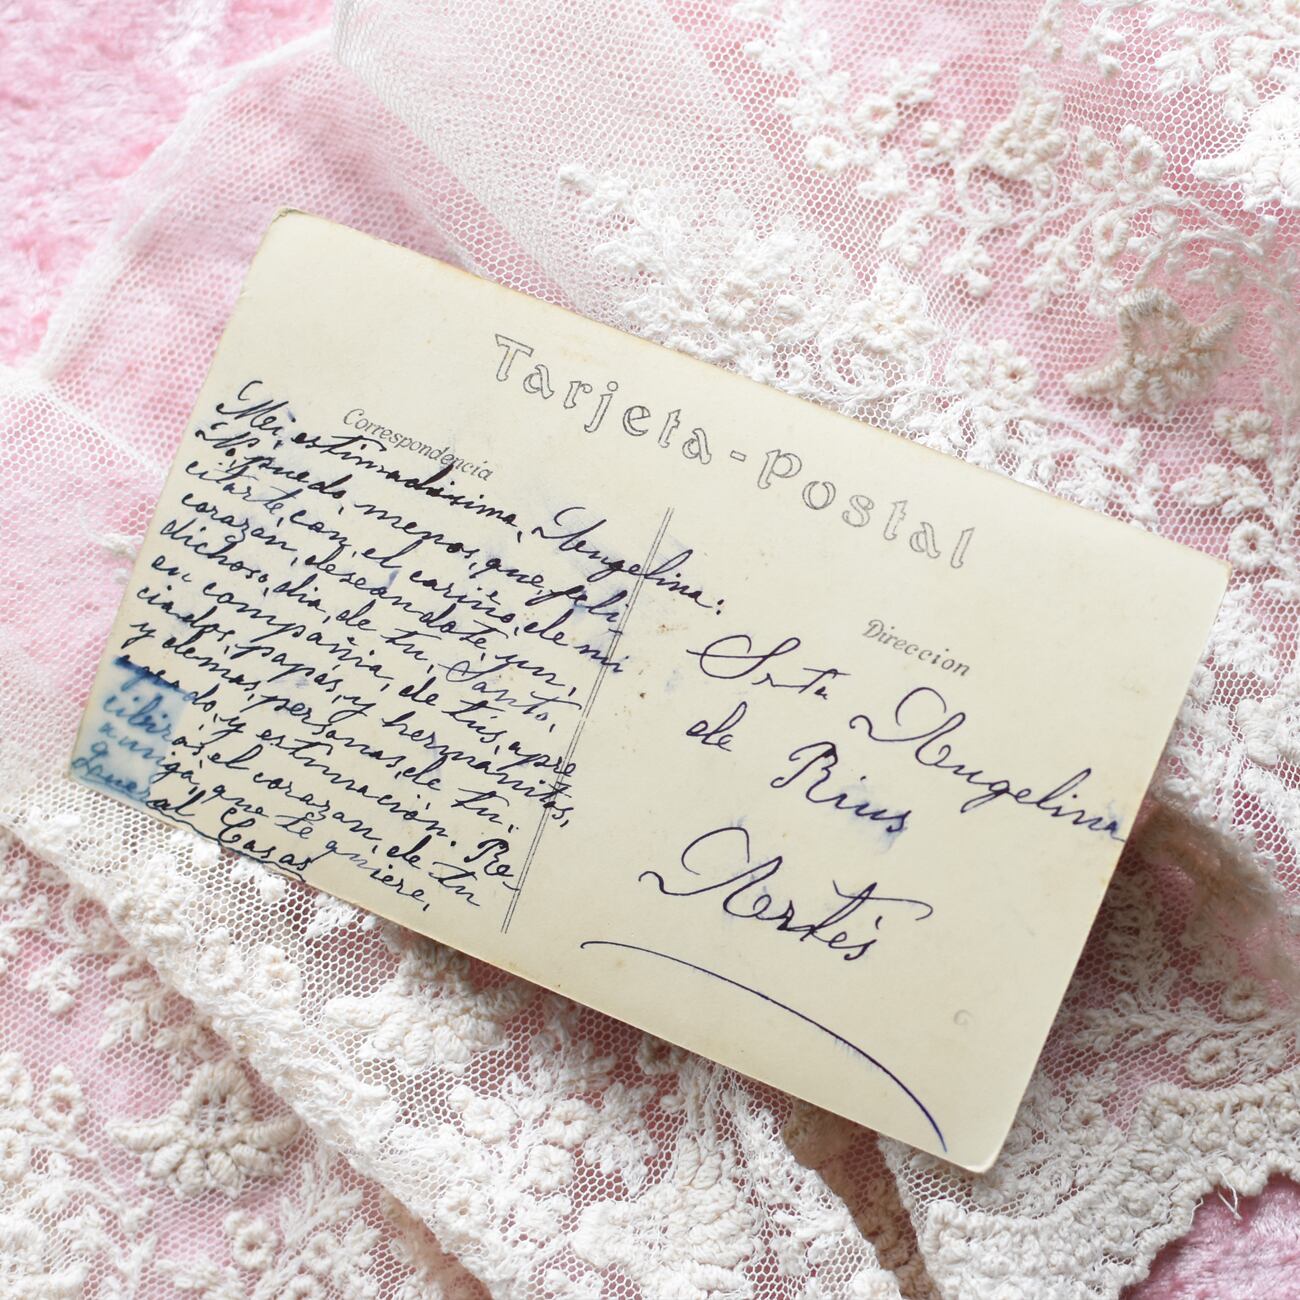 Tarjeta-Postal
Correspondencia
Mi, estimadisima, Angelina:
No, puedo, menos, que, feli
citarte, con, el cariño, de mi
corazon, deseandote, un,
dichoso, dia, de tu, Santo,
en compañia, de tus, apre
ciados, papás, y hermanitos,
y demas, personas, de tu,
agrado, y estimacion. Re-
cibiras, el corazon, de tu
amiga, que te quiere,
Casas
Direccion
Srta Angelina
de Rius
Artés